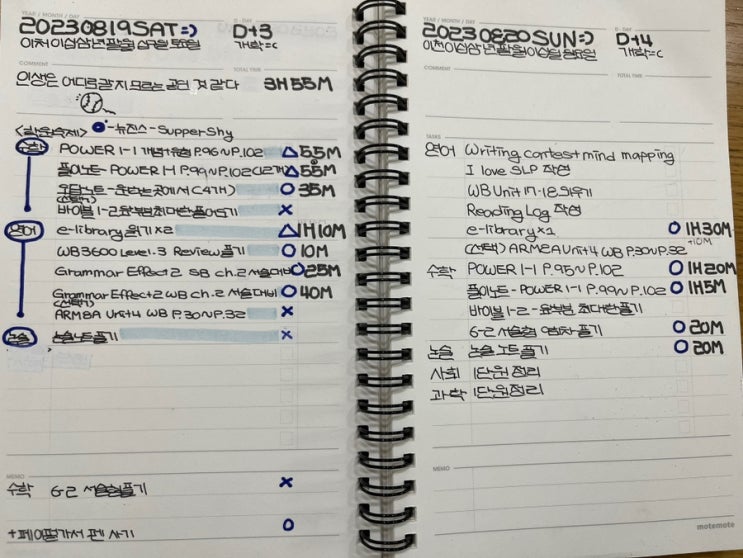 YEAR / MONTH / DAY
D - DAY
20230819 SAT =)
D+3
이천이십삼년 팔월 십구일 토요일
개학=C
COMMENT
TOTAL TIME
인생은 어디로 갈지 모르는 공인 것 같다
3H 55M
<학원숙제>
-뉴진스-Supper Shy
수학
POWER 1-1 개념+유형 P.96~P.102 △ 55M
풀이노트- POWER 1-1 P.99~P.102 △ 55M
오답노트- 원하는 곳에서 (4개) ○ 35M
(선택)
바이블 1-2 유부범 최대한 풀어오기 ×
영어
e-library 읽기 ×2 △ 1H 10M
WB3600 Level.3 Review 풀기 ○ 10M
Grammar Effect 2 SB ch.2 서술대비 ○ 25M
Grammar Effect 2 WB ch.2 서술대비 ○ 40M
(선택)
ARM8A Unit 4 WB P.30~P.32 ×
논술
논술노트 풀기 ×
MEMO
수학 6-2 서술형 풀기 ×
+페이펄 가서 펜 사기 ○
YEAR / MONTH / DAY
D - DAY
20230820 SUN =)
D+4
이천이십삼년 팔월 이십일 일요일
개학=C
COMMENT
TOTAL TIME
TASKS
영어 Writing contest mind mapping
I love SLP 작성
WB Unit 17-18 외우기
Reading Log 작성
e-library ×1 ○ 1H 30M
+10M
(선택) ARM2A Unit 4 WB P.30~P.32
수학 POWER 1-1 P.95~P.102 ○ 1H 20M
풀이노트- POWER 1-1 P.99~P.102 ○ 1H 5M
바이블 1-2 - 유부범 최대한 풀기
6-2 서술형 풀기 ○ 20M
논술 논술노트 풀기 ○ 20M
사회 1단원 정리
과학 1단원 정리
MEMO
motemote